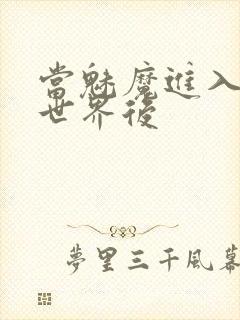 當魅魔進入
世界後
夢里三千風幕